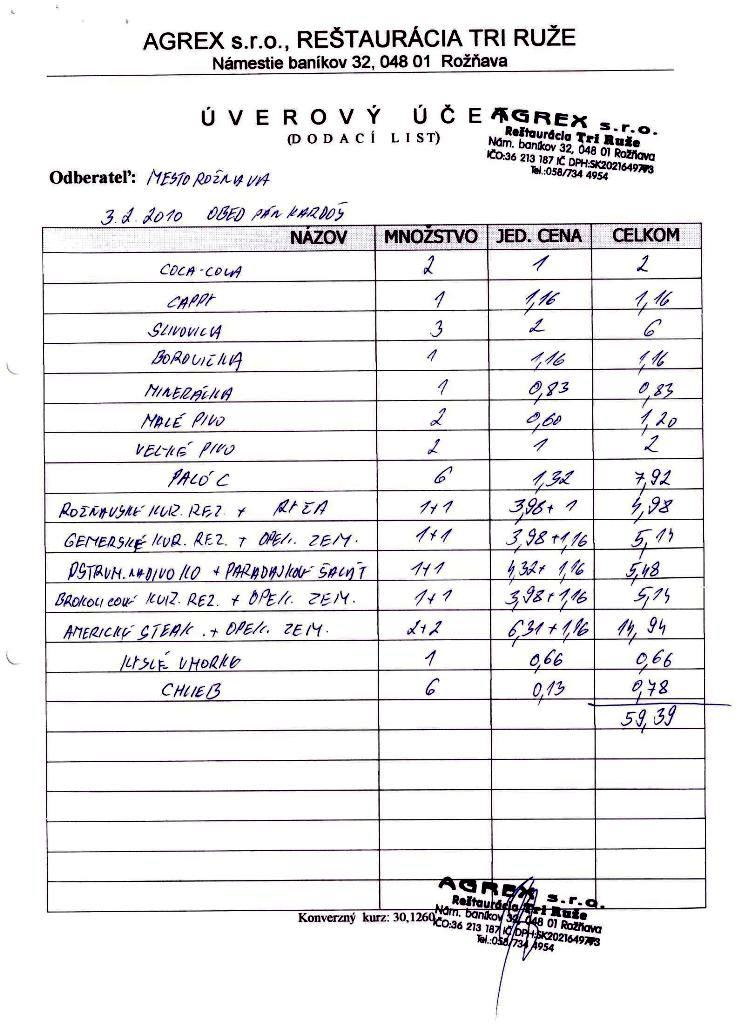 AGREX s.r.o., REŠTAURÁCIA TRI RUŽE
Námestie baníkov 32, 048 01 Rožňava
ÚVEROVÝ ÚČE
(DODACÍ LIST)
AGREX s.r.o.
Reštaurácia Tri Ruže
Nám. baníkov 32, 048 01 Rožňava
IČO:36 213 187 IČ DPH:SK2021649773
Tel.:058/734 4954
Odberateľ: MESTO ROŽŇAVA
3.2.2010 OBED PÁN KARDOŠ
NÁZOV MNOŽSTVO JED. CENA CELKOM
COCA-COLA 2 1 2
CAPPY 1 1,16 1,16
SLIVOVICA 3 2 6
BOROVIČKA 1 1,16 1,16
MINERÁLKA 1 0,83 0,83
MALÉ PIVO 2 0,60 1,20
VEĽKÉ PIVO 2 1 2
PALÓC 6 1,32 7,92
ROŽŇAVSKÉ KUR. REZ. + RYŽA 1+1 3,98+ 1 4,98
GEMERSKÉ KUR. REZ. + OPEK. ZEM. 1+1 3,98+1,16 5,14
PSTRUH NADIVOKO + PARADAJKOVÝ ŠALÁT 1+1 4,32+ 1,16 5,48
BROKOLICOVÉ KUR. REZ. + OPEK. ZEM. 1+1 3,98+1,16 5,14
AMERICKÝ STEAK . + OPEK. ZEM. 2+2 6,31+1,16 14,94
KYSLÉ UHORKY 1 0,66 0,66
CHLIEB 6 0,13 0,78
59,39
Konverzný kurz: 30,1260
AGREX s.r.o.
Reštaurácia Tri Ruže
Nám. baníkov 32, 048 01 Rožňava
IČO:36 213 187 IČ DPH:SK2021649773
Tel.:058/734 4954